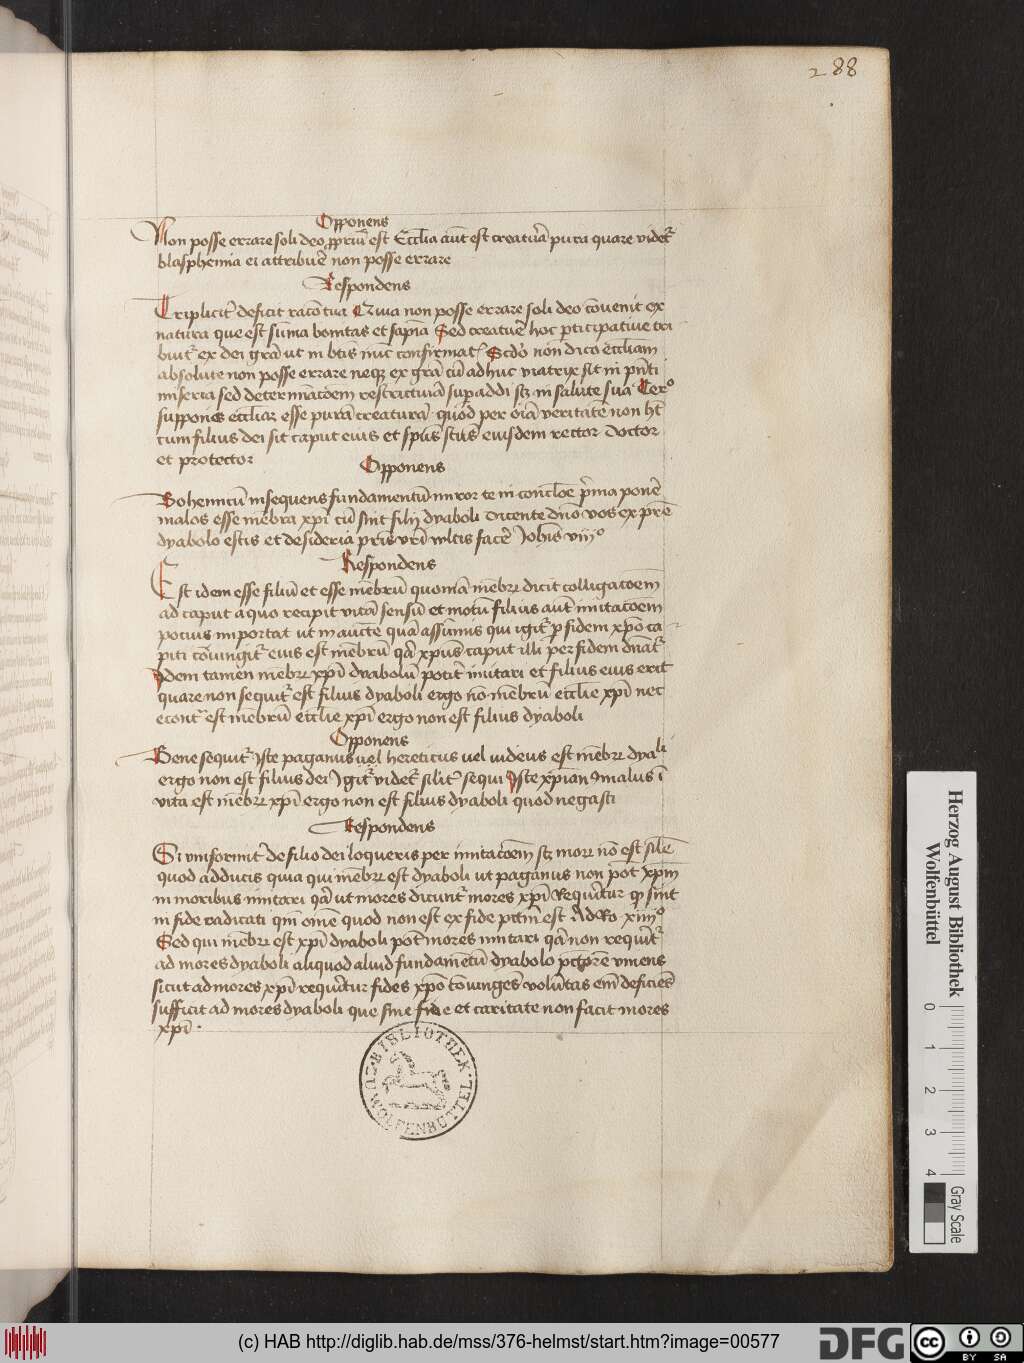 288
Opponens
Non posse errare soli deo ꝓpriū est Eccl̄ia aūt est creatura pura quare videt᷑
blasphemia ei attribuē non posse errare
Respondens
Triplicit᷑ deficit racō tua Quia non posse errare soli deo cōuenit ex
natura que est sūma bonitas et sapīa Sed creatuē hoc ꝑticipatiue tri
buit᷑ ex dei grā ut in btīs nūc confirmat᷑ Scdō non dico eccliam
absolute non posse errare neqꝫ ex grā cū adhuc viatrix sit in pn̄ti
miseria sed determinacōem restrictiuā supaddi scꝫ in salute sua Tercō
supponis eccliaz esse purā creaturā quod per oīa veritatē non hꝫ
cum filius dei sit caput eius et spūs scūs eiusdem rector doctor
et protector
Opponens
Bohemicū insequens fundamentū miror te in concloē prīma ponē
malos esse mēbra xpī cū sint filij dyaboli dicente dn̄o vos ex prē
dyabolo estis et desideria prīs vrī wltis facē Johīs viijº
Respondens
Est idem esse filiū et esse mēbrū quoniā mēbrū dicit colligacōem
ad caput a quo recipit vitā sensū et motū filius aūt imitacōem
pocius importat ut in aucte quā assūmis qui igit᷑ ꝑ fidem xpō ca
piti cōiungit᷑ eius est mēbrū qā xpūs caput illi per fidem dn̄at᷑
Idem tamen mēbrū xpī dyabolū potit᷑ imitari et filius eius erit
quare non sequit᷑ est filius dyaboli ergo nō mēbrū ecclie xpī nec
econt᷑ est mēbrū ecclie xpī ergo non est filius dyaboli
Opponens
Bene sequit᷑ Iste paganus uel hereticus uel iudeus est mēbrū dyali
ergo non est filius dei Igit᷑ videt᷑ silit᷑ sequi Iste xpian9 malus ī
vita est mēbrū xpī ergo non est filius dyaboli quod negasti
Respondens
Si vniformit᷑ de filio dei loqueris per imitacōem scꝫ morū nō est silē
quod adducis quia qui mēbrū est dyaboli ut paganus non pot xpm̄
in moribus imitari qā ut mores dicunt᷑ mores xpī Requirūtur qꝫ sint
in fide radicati qm̄ om̄e quod non est ex fide pctm̄ est Ad Ro xiiijº
Sed qui mēbrū est xpī dyaboli pōt mores imitari qā non requirit᷑
ad mores dyaboli aliquod aliud fundamētū dyabolo pctorē vniens
sicut ad mores xpī requiritur fides xpō cōiungēs volūtas em̄ deficiēs
sufficit ad mores dyaboli que sine fide et caritate non facit mores
xpī
BIBLIOTHEK
ZU WOLFENBÜTTEL
Herzog August Bibliothek
Wolfenbüttel
0 1 2 3 4
Gray Scale
(c) HAB http://diglib.hab.de/mss/376-helmst/start.htm?image=00577
DFG
cc BY SA